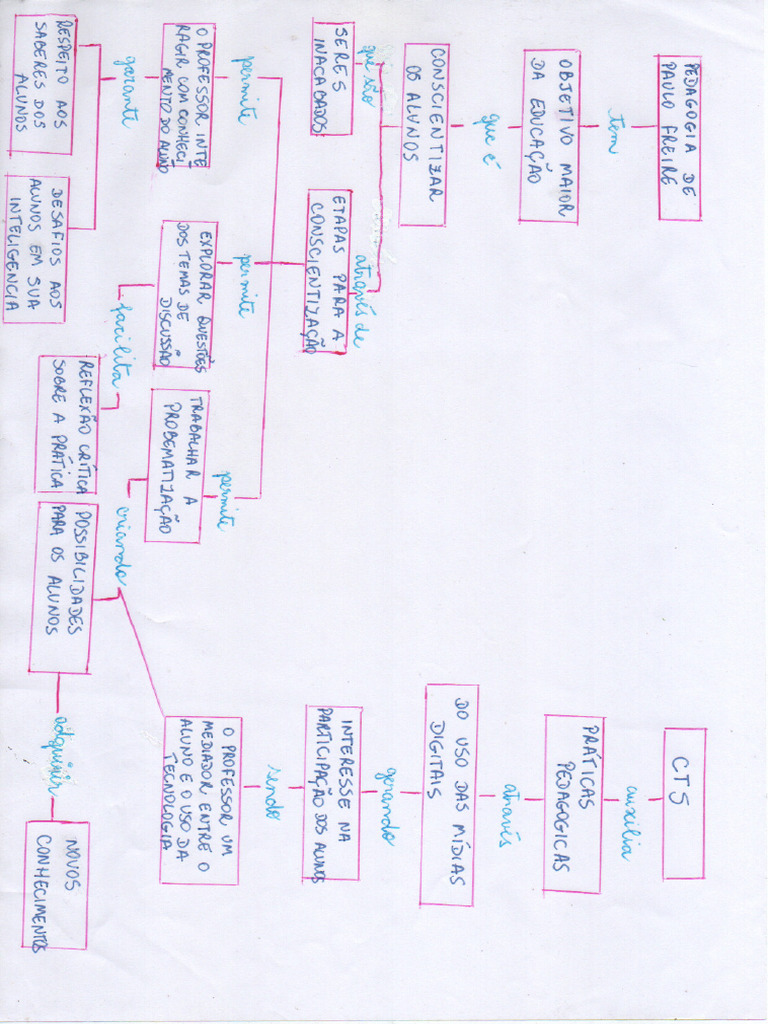 PEDAGOGIA DE
PAULO FREIRE
tem
OBJETIVO MAIOR
DA EDUCAÇÃO
que é
CONSCIENTIZAR
OS ALUNOS
que são
SERES
INACABADOS
através de
ETAPAS PARA A
CONSCIENTIZAÇÃO
permite
O PROFESSOR INTE
RAGIR COM CONHECI
MENTO DO ALUNO
garante
RESPEITO AOS
SABERES DOS
ALUNOS
DESAFIOS AOS
ALUNOS EM SUA
INTELIGENCIA
permite
EXPLORAR QUESTÕES
DOS TEMAS DE
DISCUSSÃO
facilita
REFLEXÃO CRÍTICA
SOBRE A PRÁTICA
permite
TRABALHAR A
PROBEMATIZAÇÃO
criando
POSSIBILIDADES
PARA OS ALUNOS
adquirir
NOVOS
CONHECIMENTOS
CTS
auxilia
PRÁTICAS
PEDAGOGICAS
através
DO USO DAS MÍDIAS
DIGITAIS
gerando
INTERESSE NA
PARTICIPAÇÃO DOS ALUNOS
sendo
O PROFESSOR UM
MEDIADOR ENTRE O
ALUNO E O USO DA
TECNOLOGIA